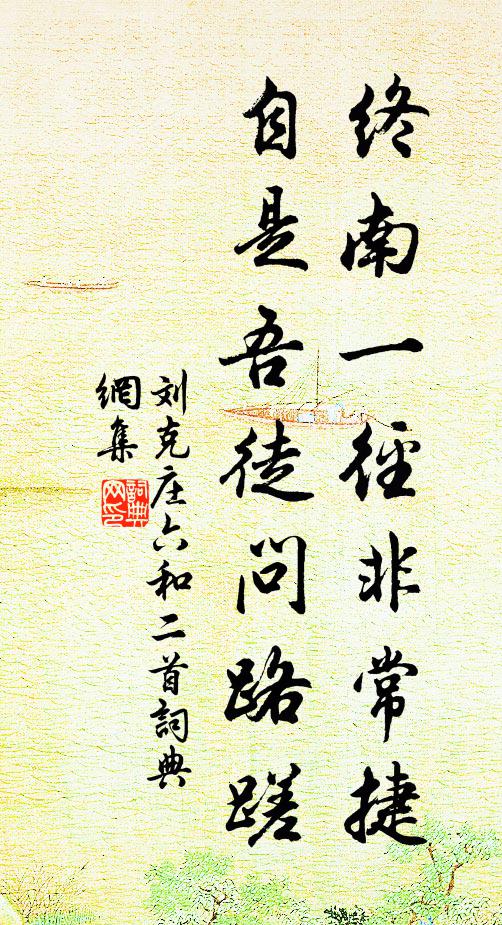 終南一徑非常捷
自是吾徒問路蹉
刘克庄六和二首詞典
網集
詞典网印